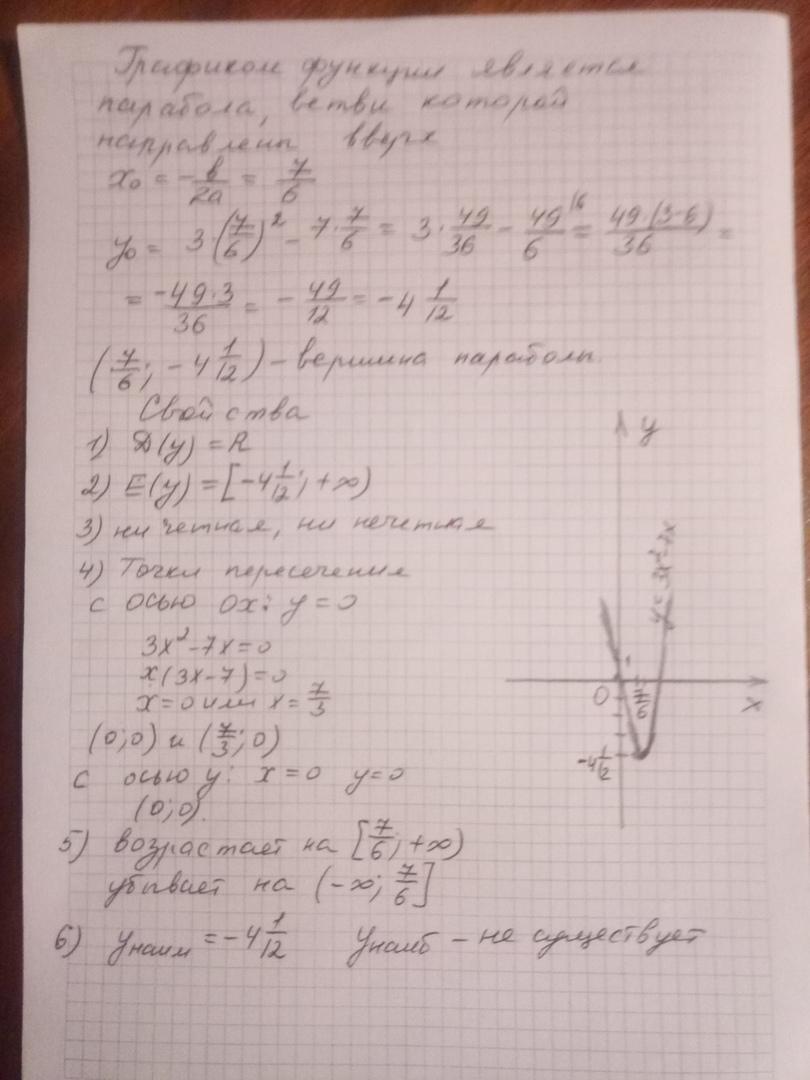 Графиком функции является
парабола, ветви которой
направлены вверх
x₀ = -b/2a = 7/6
y₀ = 3·(7/6)² - 7·7/6 = 3·49/36 - 49/6 \6 = 49·(3-6)/36 =
= -49·3/36 = -49/12 = -4 1/12
(7/6; -4 1/12) - вершина параболы.
Свойства
1) D(y) = R
2) E(y) = [-4 1/12; +∞)
3) ни четная, ни нечетная
4) Точки пересечения
с осью OX: y = 0
3x² - 7x = 0
x(3x-7) = 0
x = 0 или x = 7/3
(0;0) и (7/3; 0)
с осью y: x = 0 y = 0
(0;0).
5) возрастает на [7/6; +∞)
убывает на (-∞; 7/6]
6) yнаим = -4 1/12 yнаиб - не существует
y
y = 3x² - 7x
0
7/6
x
-4 1/12